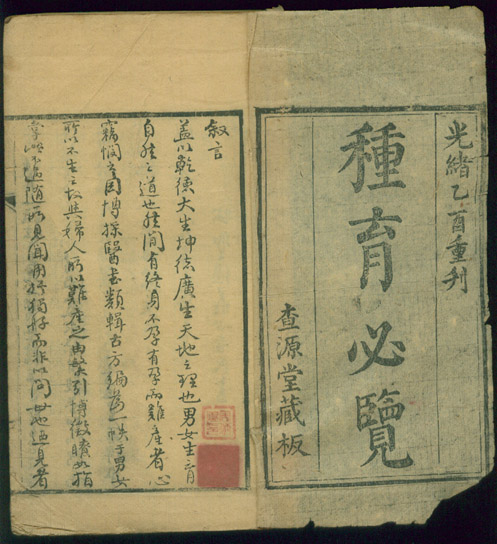 光緒乙酉重刊
種育必覽
查源堂藏板
叙言
蓋以乾德大生坤德廣生天地之理也男女生育
自然之道也然間有終身不孕有孕而難產者心
竊憫之因博採醫書類輯古方編為一帙于男女
所以不生之故與婦人所以難產之由繁引博徵瞭如指
掌此不過隨所見聞用於獨好而非以問世也適見者